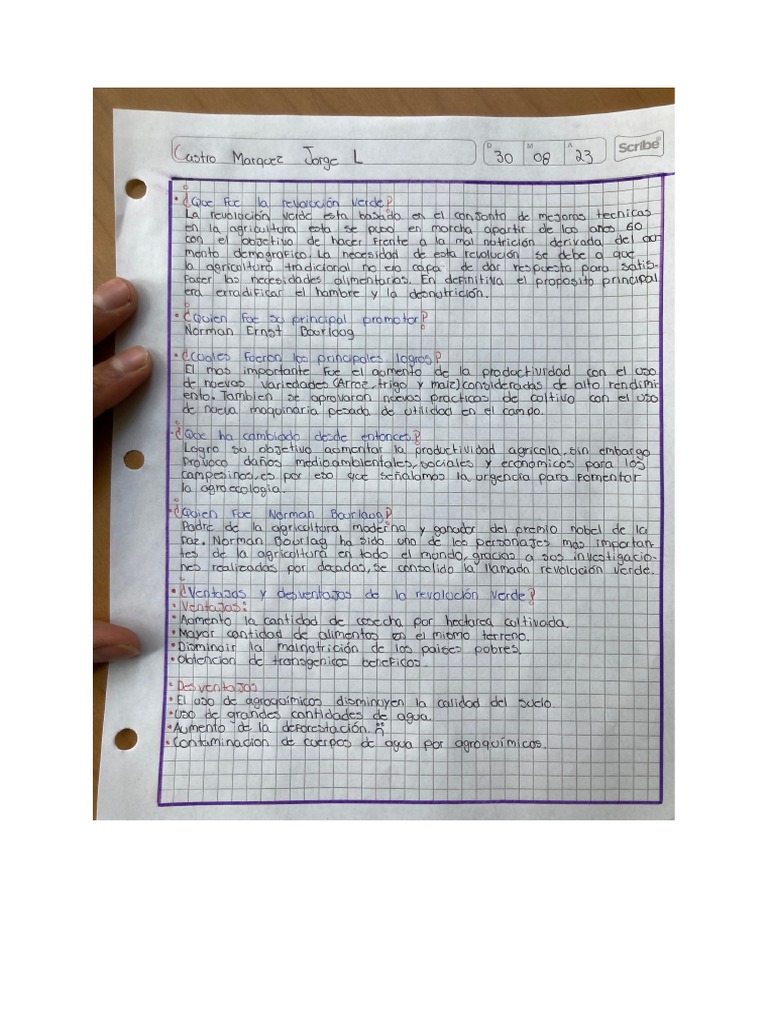 Castro Marquez Jorge L D 30 M 08 A 23 Scribe
¿Que fue la revolución verde?
La revolución verde esta basado en el conjunto de mejoras tecnicas
en la agricultura esta se puso en marcha apartir de los años 60
con el objetivo de hacer frente a la mal nutrición derivada del au-
mento demografico. La necesidad de esta revolución se debe a que
la agricultura tradicional no era capa de dar respuesta para satis-
facer las necesidades alimentarias. En definitiva el proposito principal
era erradificar el hambre y la desnutrición.
• ¿Quien fue su principal promotor?
Norman Ernst Bourlaog
• ¿Cuales fueron los principales logros?
El mas importante fue el aumento de la productividad con el uso
de nuevas variedades (Arroz, trigo y maiz) consideradas de alto rendimi-
ento. Tambien se aprovaron nuevas practicas de cultivo con el uso
de nueva maquinaria pesada de utilidad en el campo.
• ¿Que ha cambiado desde entonces?
Logro su objetivo aumentar la productividad agricola, sin embargo
provoco daños medioambientales, sociales y economicos para los
campesinos, es por eso que señalamos la urgencia para fomentar
la agroecologia.
• ¿Quien fue Norman Bourlaog?
Padre de la agricultura moderna y ganador del premio nobel de la
paz. Norman Bourlag ha sido uno de los personajes mas importan-
tes de la agricultura en todo el mundo, gracias a sus investigacio-
nes realizadas por decadas, se consolido la llamada revolución verde.
• ¿Ventajas y desventajas de la revolución verde?
• Ventajas:
• Aumento la cantidad de cosecha por hectarea cultivada.
• Mayor cantidad de alimentos en el mismo terreno.
• Disminuir la malnutrición de los paises pobres.
• Obtencion de transgenicos beneficos.
• Desventajas
• El uso de agroquímicos disminuyen la calidad del suelo.
• Uso de grandes cantidades de agua.
• Aumento de la deforestación.
• Contaminacion de cuerpos de agua por agroquímicos.